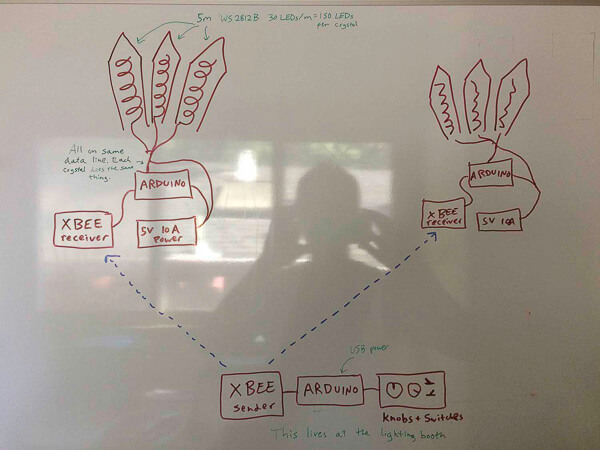 5m WS2812B 30 LEDs/m = 150 LEDs
per crystal
All on same
data line. Each
crystal does the same
thing.
ARDUINO
XBEE
receiver
5V 10A
Power
ARDUINO
XBEE
receiver
5V 10A
USB power
XBEE
sender
ARDUINO
Knobs + Switches
This lives at the lighting booth